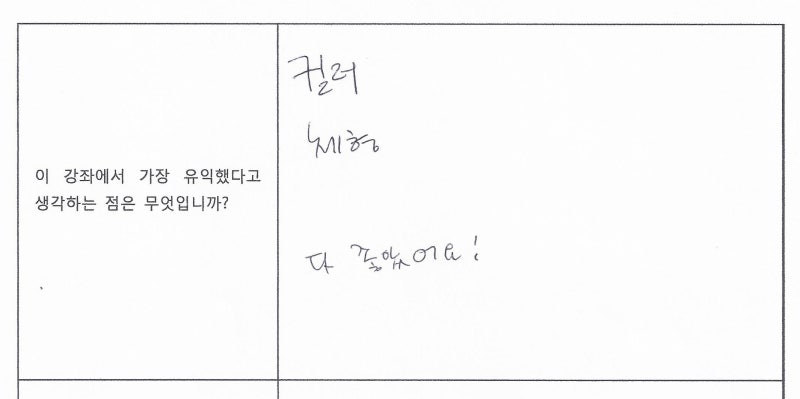 이 강좌에서 가장 유익했다고
생각하는 점은 무엇입니까?
컬러
체형
다 좋았어요!